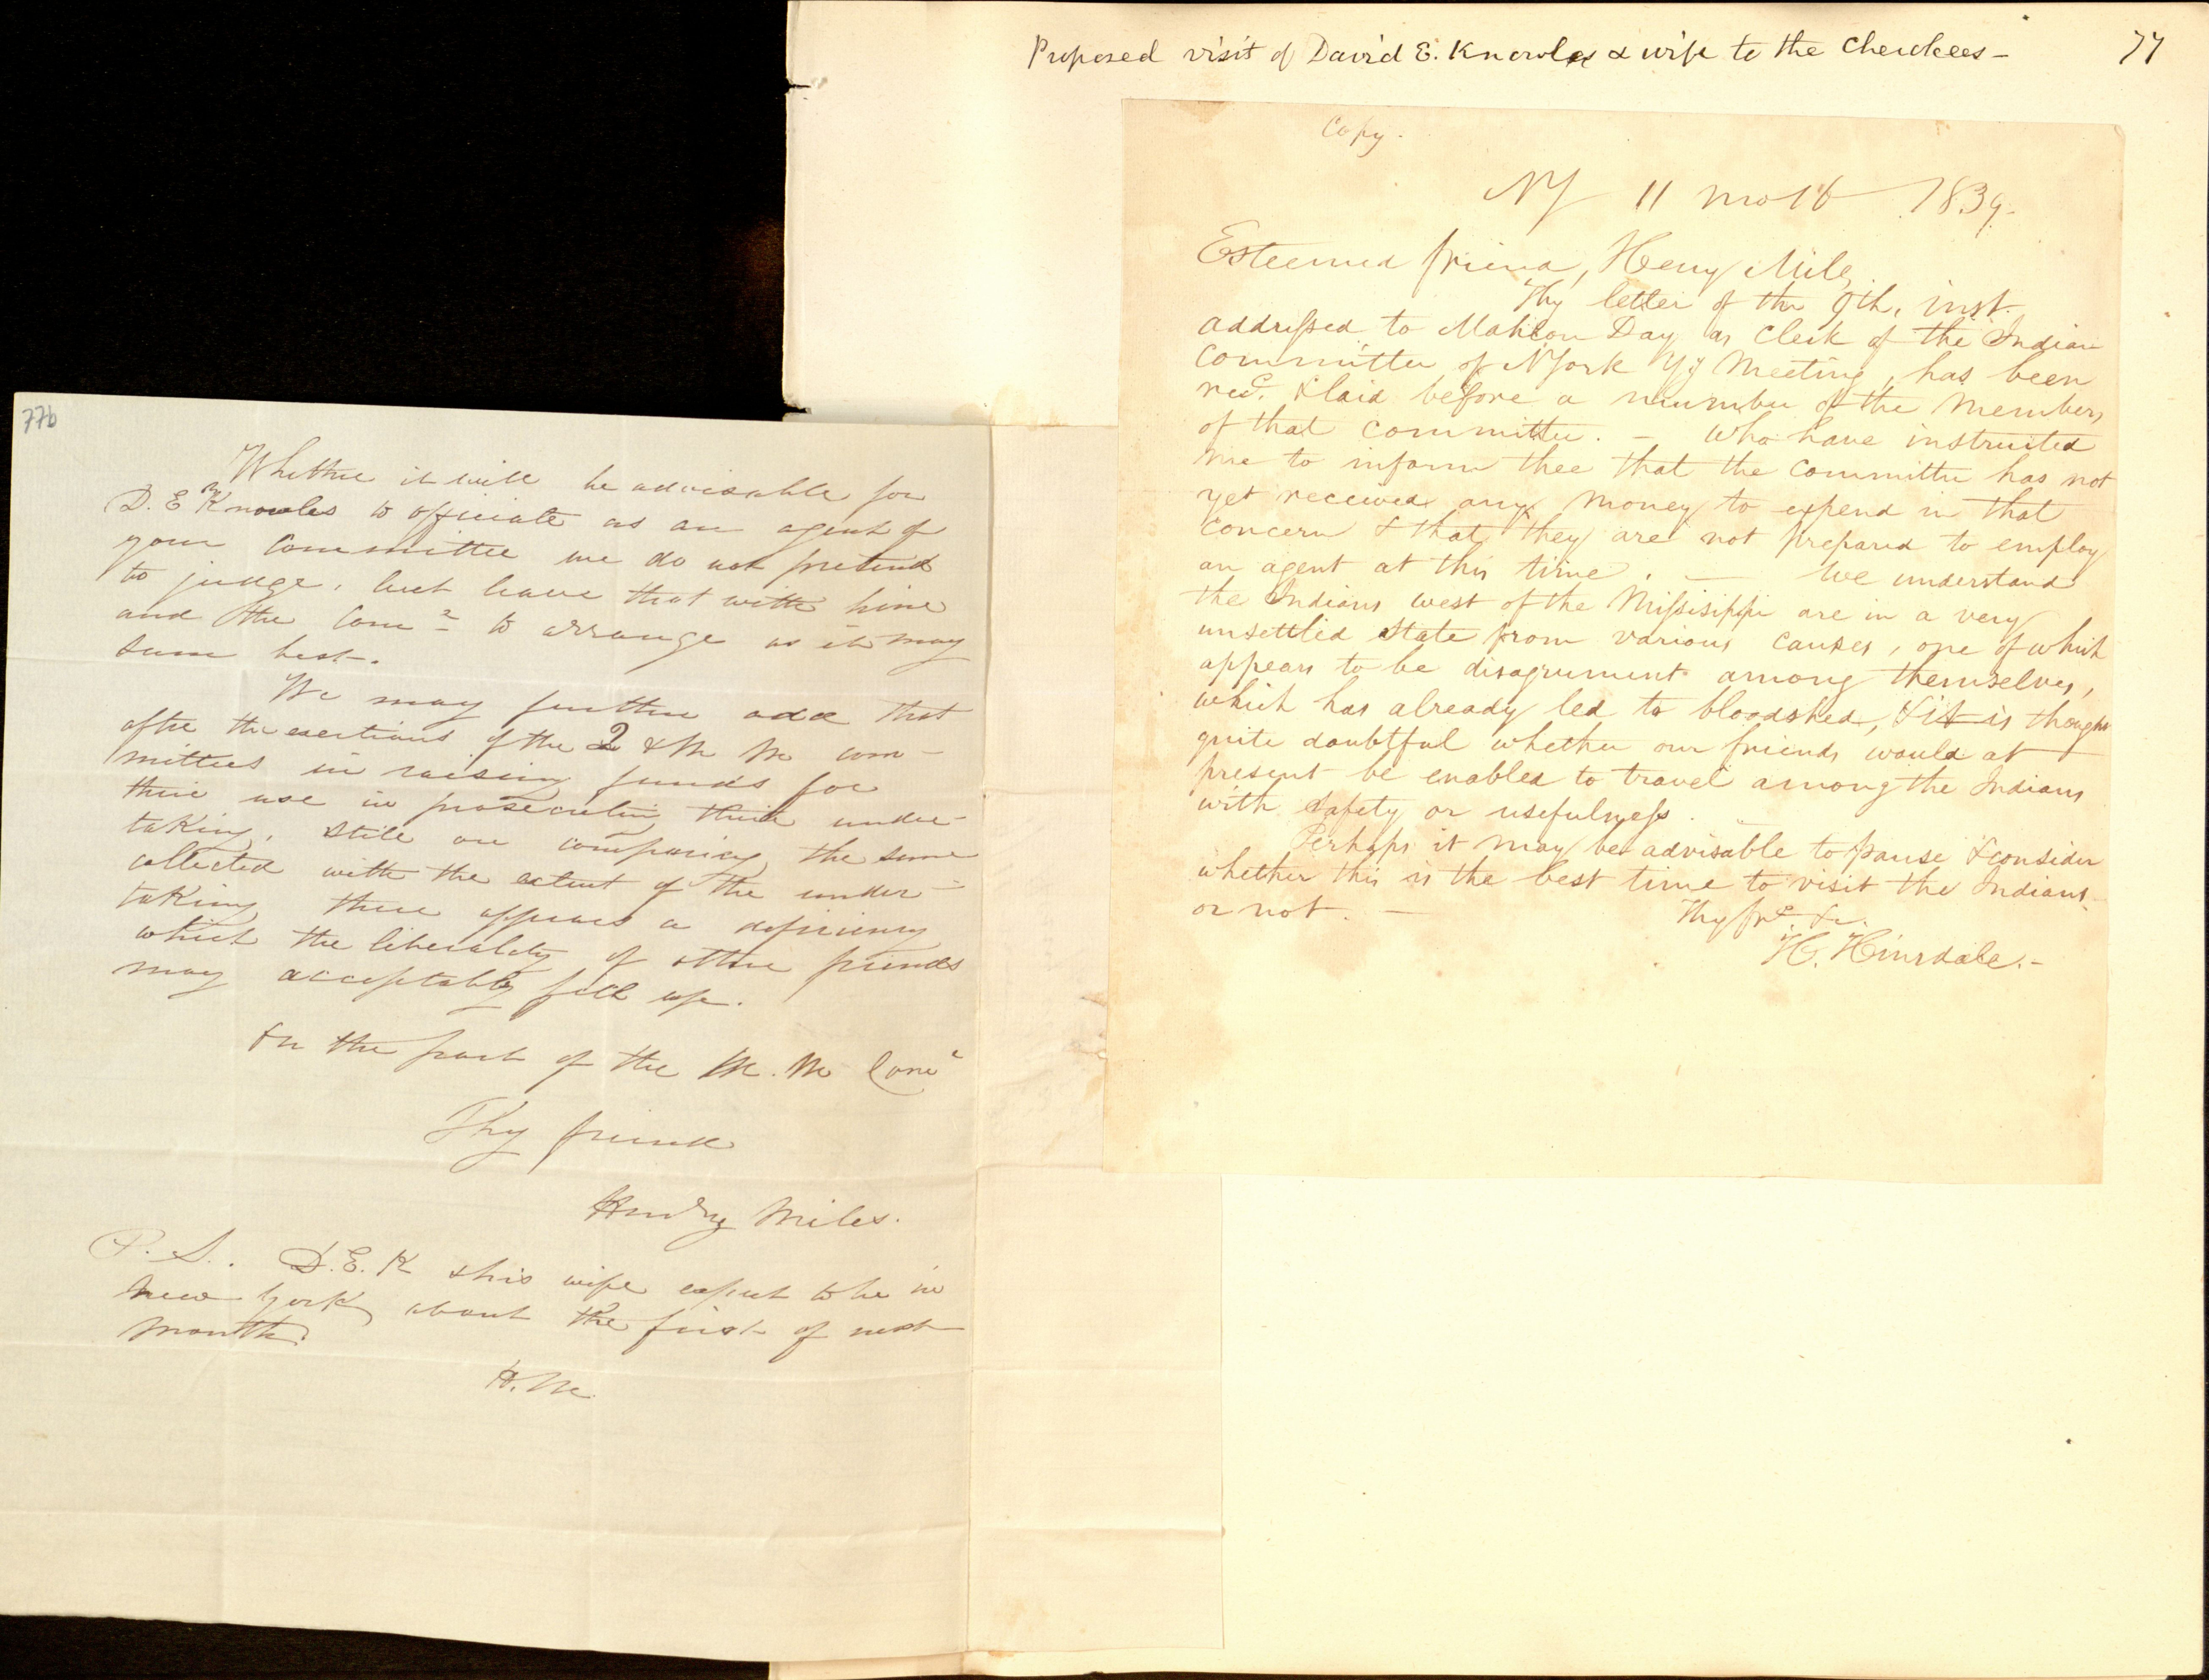 Proposed visit of David E. Knowles & wife to the Cherokees -
77
Copy.
NY 11 mo 16 1839.
Esteemed friend, Henry Miles,
Thy letter of the 9th. inst.
addressed to Mahlon Day as Clerk of the Indian
Committee of NYork Yy Meeting, has been
recd. & laid before a number of the Members
of that Committee. - Who have instructed
me to inform thee that the Committee has not
yet received any money to expend in that
concern & that they are not prepared to employ
an agent at this time. - We understand
the Indians west of the Missisippi are in a very
unsettled state from various causes, one of which
appears to be disagrument among themselves,
which has already led to bloodshed, & it is thought
quite doubtful whether our friends would at
present be enabled to travel among the Indians
with safety or usefulness. -
Perhaps it may be advisable to pause & consider
whether this is the best time to visit the Indians
or not. -
Thy frd. &c.
H. Hinsdale. -
77b
Whether it will be advisable for
D. E Knowles to officiate as an agent of
your Committee we do not pretend
to judge, but leave that with him
and the Come to arrange as it may
seem best.
We may further add that
after the exertions of the 2 & M Mo com-
mittees in raising funds for
their use in prosecuting their under-
taking, still on comparing the sum
collected with the extent of the under-
taking there appears a deficiency
which the liberality of other friends
may acceptably fill up.
On the part of the M. Mo Come
Thy friend
Henry Miles.
P. S.. D. E. K & his wife expect to be in
New York about the first of next
month.
H. M.